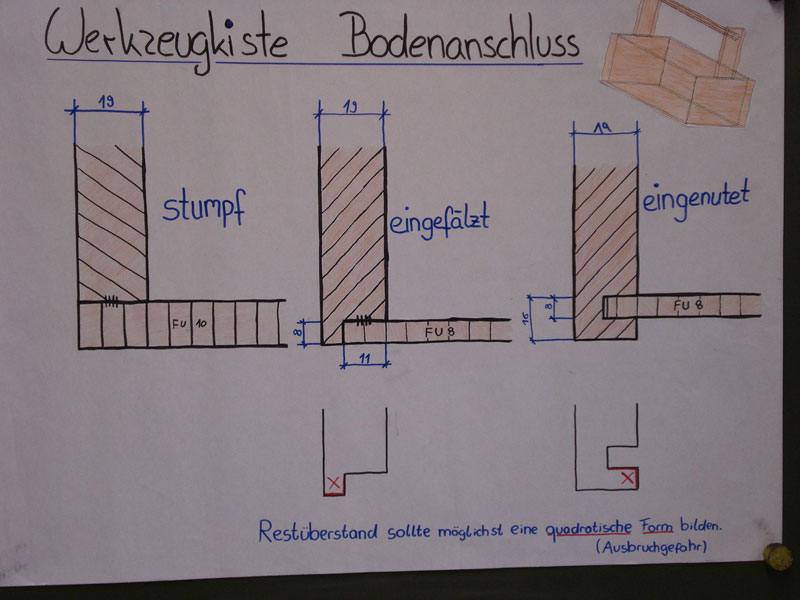 Werkzeugkiste Bodenanschluss
19
19
19
stumpf
eingefälzt
eingenutet
FU 10
8
FU 8
11
16
8
FU 8
X
X
Restüberstand sollte möglichst eine quadratische Form bilden.
(Ausbruchgefahr)